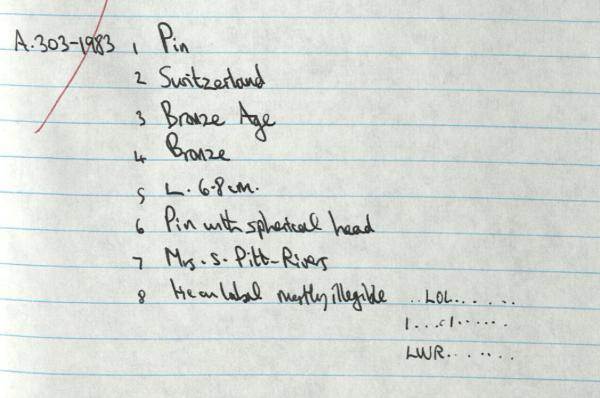 A.303-1983 1 Pin
2 Switzerland
3 Bronze Age
4 Bronze
5 L. 6.8cm.
6 Pin with spherical head
7 Mrs. S. Pitt-Rivers
8 label mostly illegible ..LOL.. . . ..
1...c1......
LWR.. . . . .